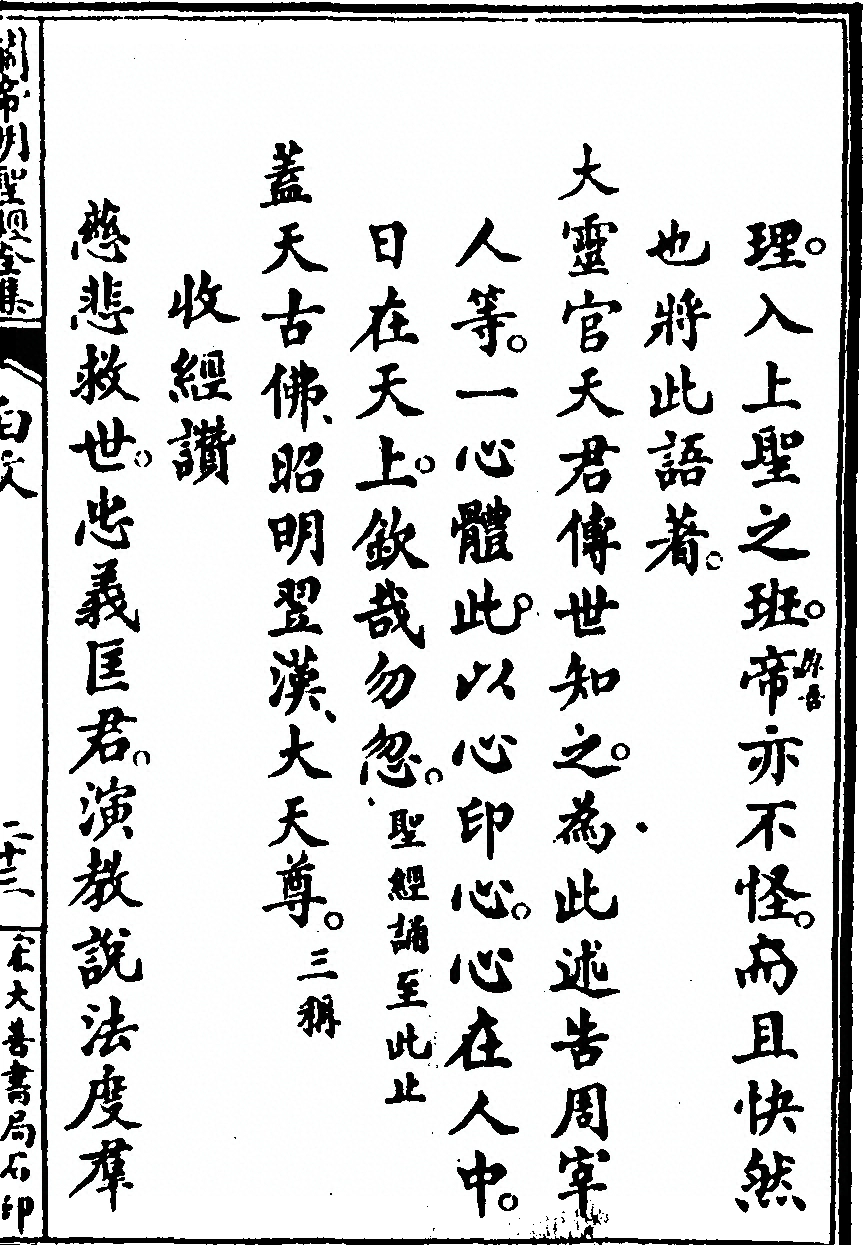 理。入上聖之班。帝亦不怪。而且快然
也將此語着。
大靈官天君傳世知之。為此述告周宰
人等。一心體此。以心印心。心在人中。
日在天上。欽哉勿忽。聖經誦至此止
蓋天古佛、昭明翌漢、大天尊。三稱
收經讚
慈悲救世。忠義匡君。演教說法度羣
關帝明聖經全集
二十三
宏大善書局石印